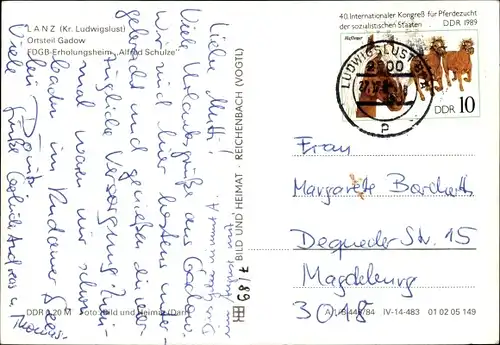 LANZ (Kr. Ludwigslust)
Ortsteil Gadow
FDGB-Erholungsheim „Alfred Schulze"
Liebe Mutti!
Viele Urlaubsgrüße aus Gadow.
wir sind hier bestens unter-
gebracht und genießen die vor-
zügliche Versorgung. Zwei-
mal waren wir schon
baden im
Viele Grüße
Andreas u.
Thomas
BILD UND HEIMAT · REICHENBACH (VOGTL)
7/89
DDR 0,20 M Foto: Bild und Heimat
A 1/B 448/84 IV-14-483 01 02 05 149
40. Internationaler Kongreß für Pferdezucht
der sozialistischen Staaten
DDR 1989
Haflinger
DDR 10
LUDWIGSLUST
2800
Frau
Margarete Borcherts
Dequeder Str. 15
Magdeburg
3018